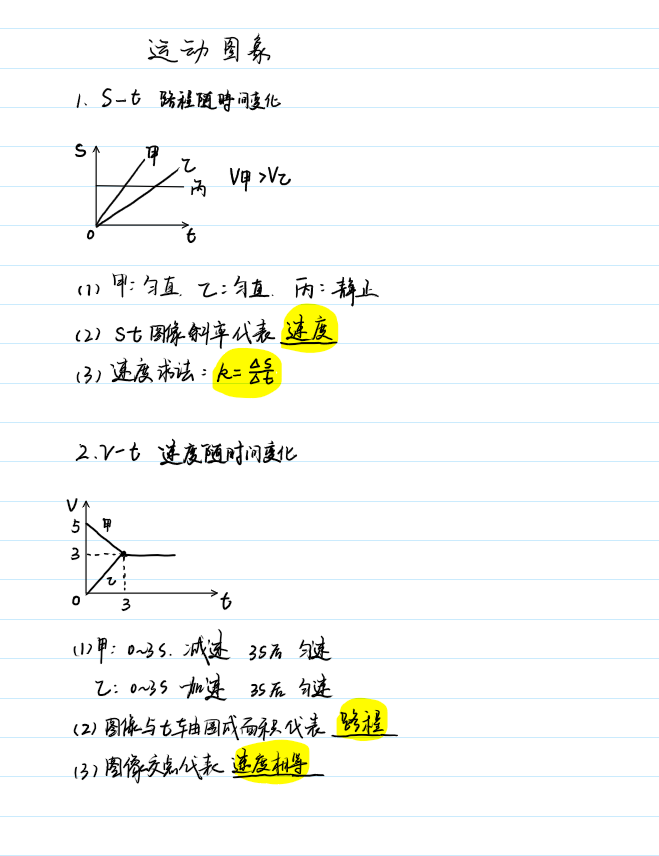 运动图象
1. S-t 路程随时间变化
S
甲
乙
丙
V甲>V乙
0
t
(1) 甲:匀直. 乙:匀直. 丙:静止
(2) St图像斜率代表 速度
(3) 速度求法: k=Δs/Δt
2.V-t 速度随时间变化
V
5 甲
3
乙
0 3 t
(1)甲: 0~3s. 减速 3s后 匀速
乙: 0~3s 加速 3s后 匀速
(2) 图像与t轴由围成面积代表 路程
(3) 图像交点代表 速度相等